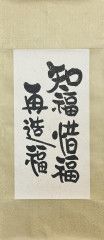 知福惜福
再造福